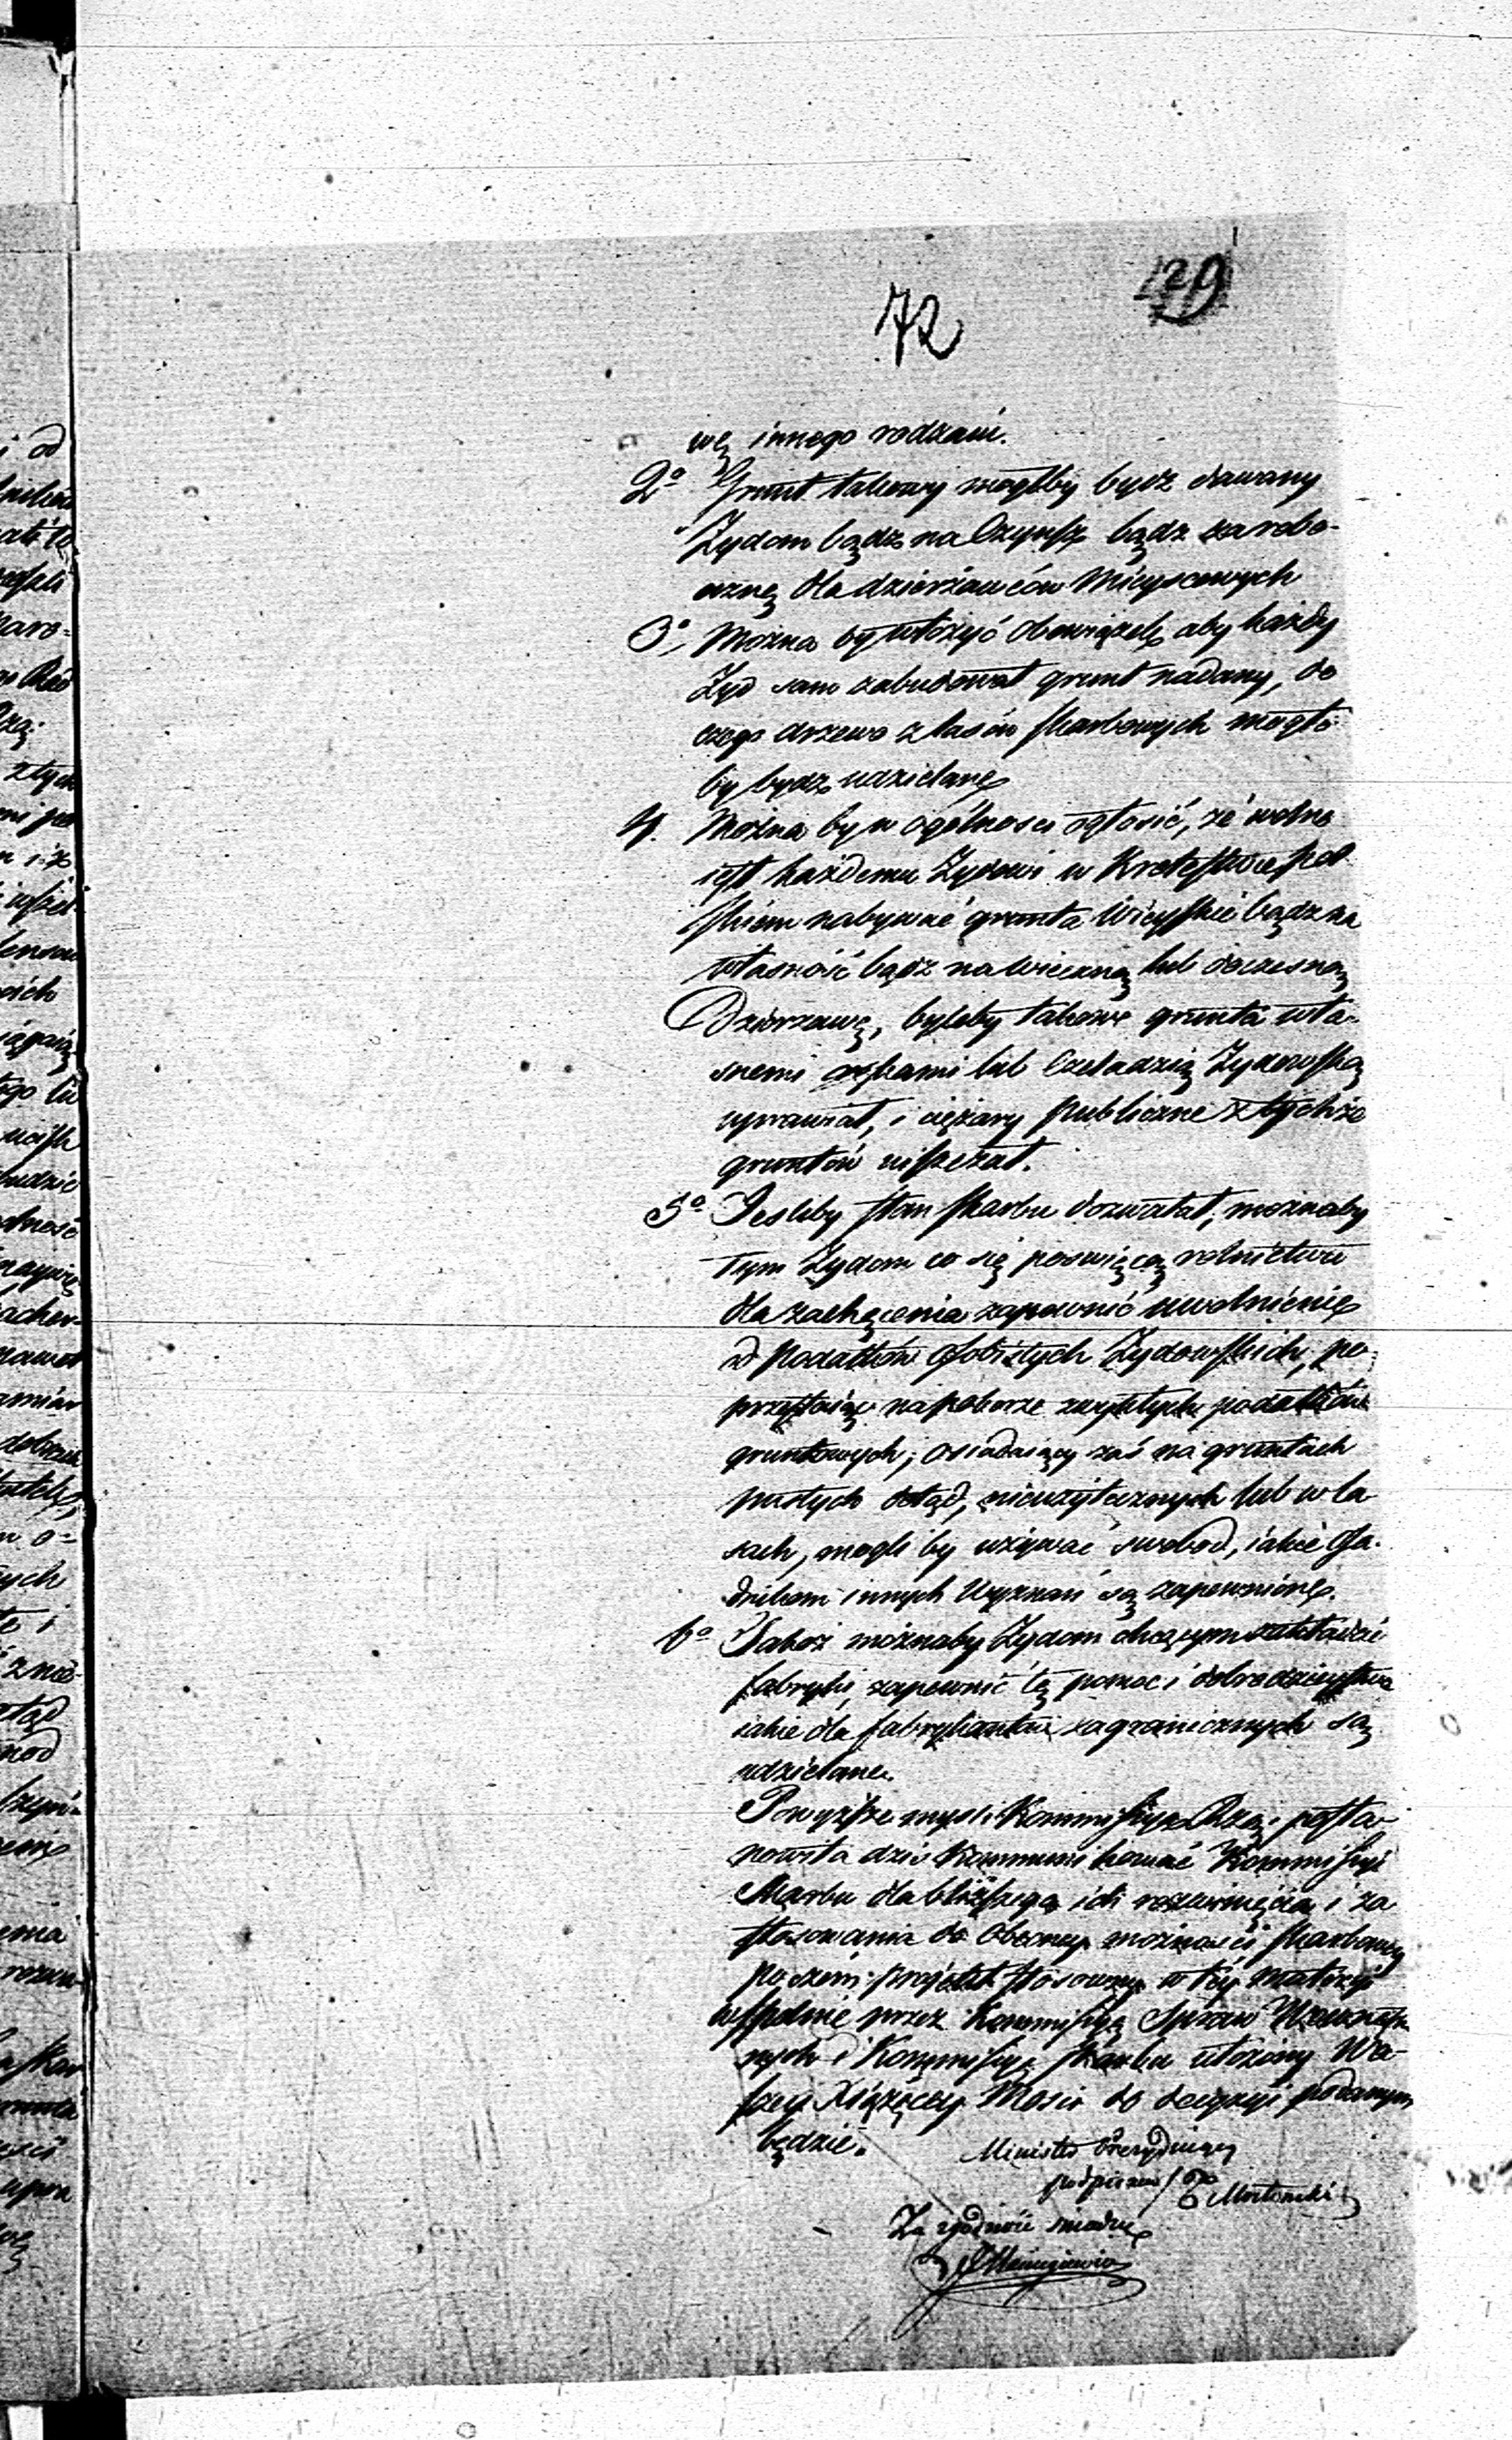 72
129
wę innego rodzaiu.
2o Grunt takowy mógłby bydź dawany
Żydom bądź na Czynsz bądź za robo-
ciznę dla dzierżawców Mieyscowych
3o, Można by włożyć obowiązek, aby każdy
Żyd sam zabudował grunt nadany, do
czego drzewo z lasów skarbowych mogło
by bydź udzielane
4. Można by w ogólności ogłosić, że wolno
iest każdemu Żydowi w Królestwie Pol
skiem nabywać grunta Wieyskie bądź na
własność bądź na wieczną lub doczesną
Dzierżawę, byleby takowe grunta wła-
snemi rękami lub Czeladzią Żydowską
uprawiał, i ciężary publiczne z tychże
gruntów uiszczał.
5o Jesliby stan skarbu dozwalał, możnaby
tym Żydom co się poswięcą rolnictwu
dla zachęcenia zapewnić uwolnienie
od podatków osobistych Żydowskich, po-
przestaiąc na poborze zwykłych podatków
gruntowych; osiadaiący zaś na gruntach
pustych dotąd, nieużytecznych lub w la
sach, mogli by używać swobod, iakie Osa-
dnikom innych Wyznań są zapewnione.
6o Także możnaby Żydom chcącym zakładać
fabryki, zapewnić tę pomoc i dobrodzieystwa
iakie dla fabrykantów zagranicznych są
udzielane.
Powyższe mysli Kommissya Rzą: posta-
nowiła dziś kommunikować Kommissyi
Skarbu dla bliższego ich rozwinięcia i za
stosowania do obecney możności skarbowey
poczem projekt stosowny w tey materyi
wspólnie przez Kommissyą Spraw Wewnętrz
nych i Kommissyę Skarbu ułożony Wa-
szey Xiążęcey Mości do decyzyi podanym
będzie.
Minister Prezyduiący
podpisano / Mostowski
Za zgodność świadczę